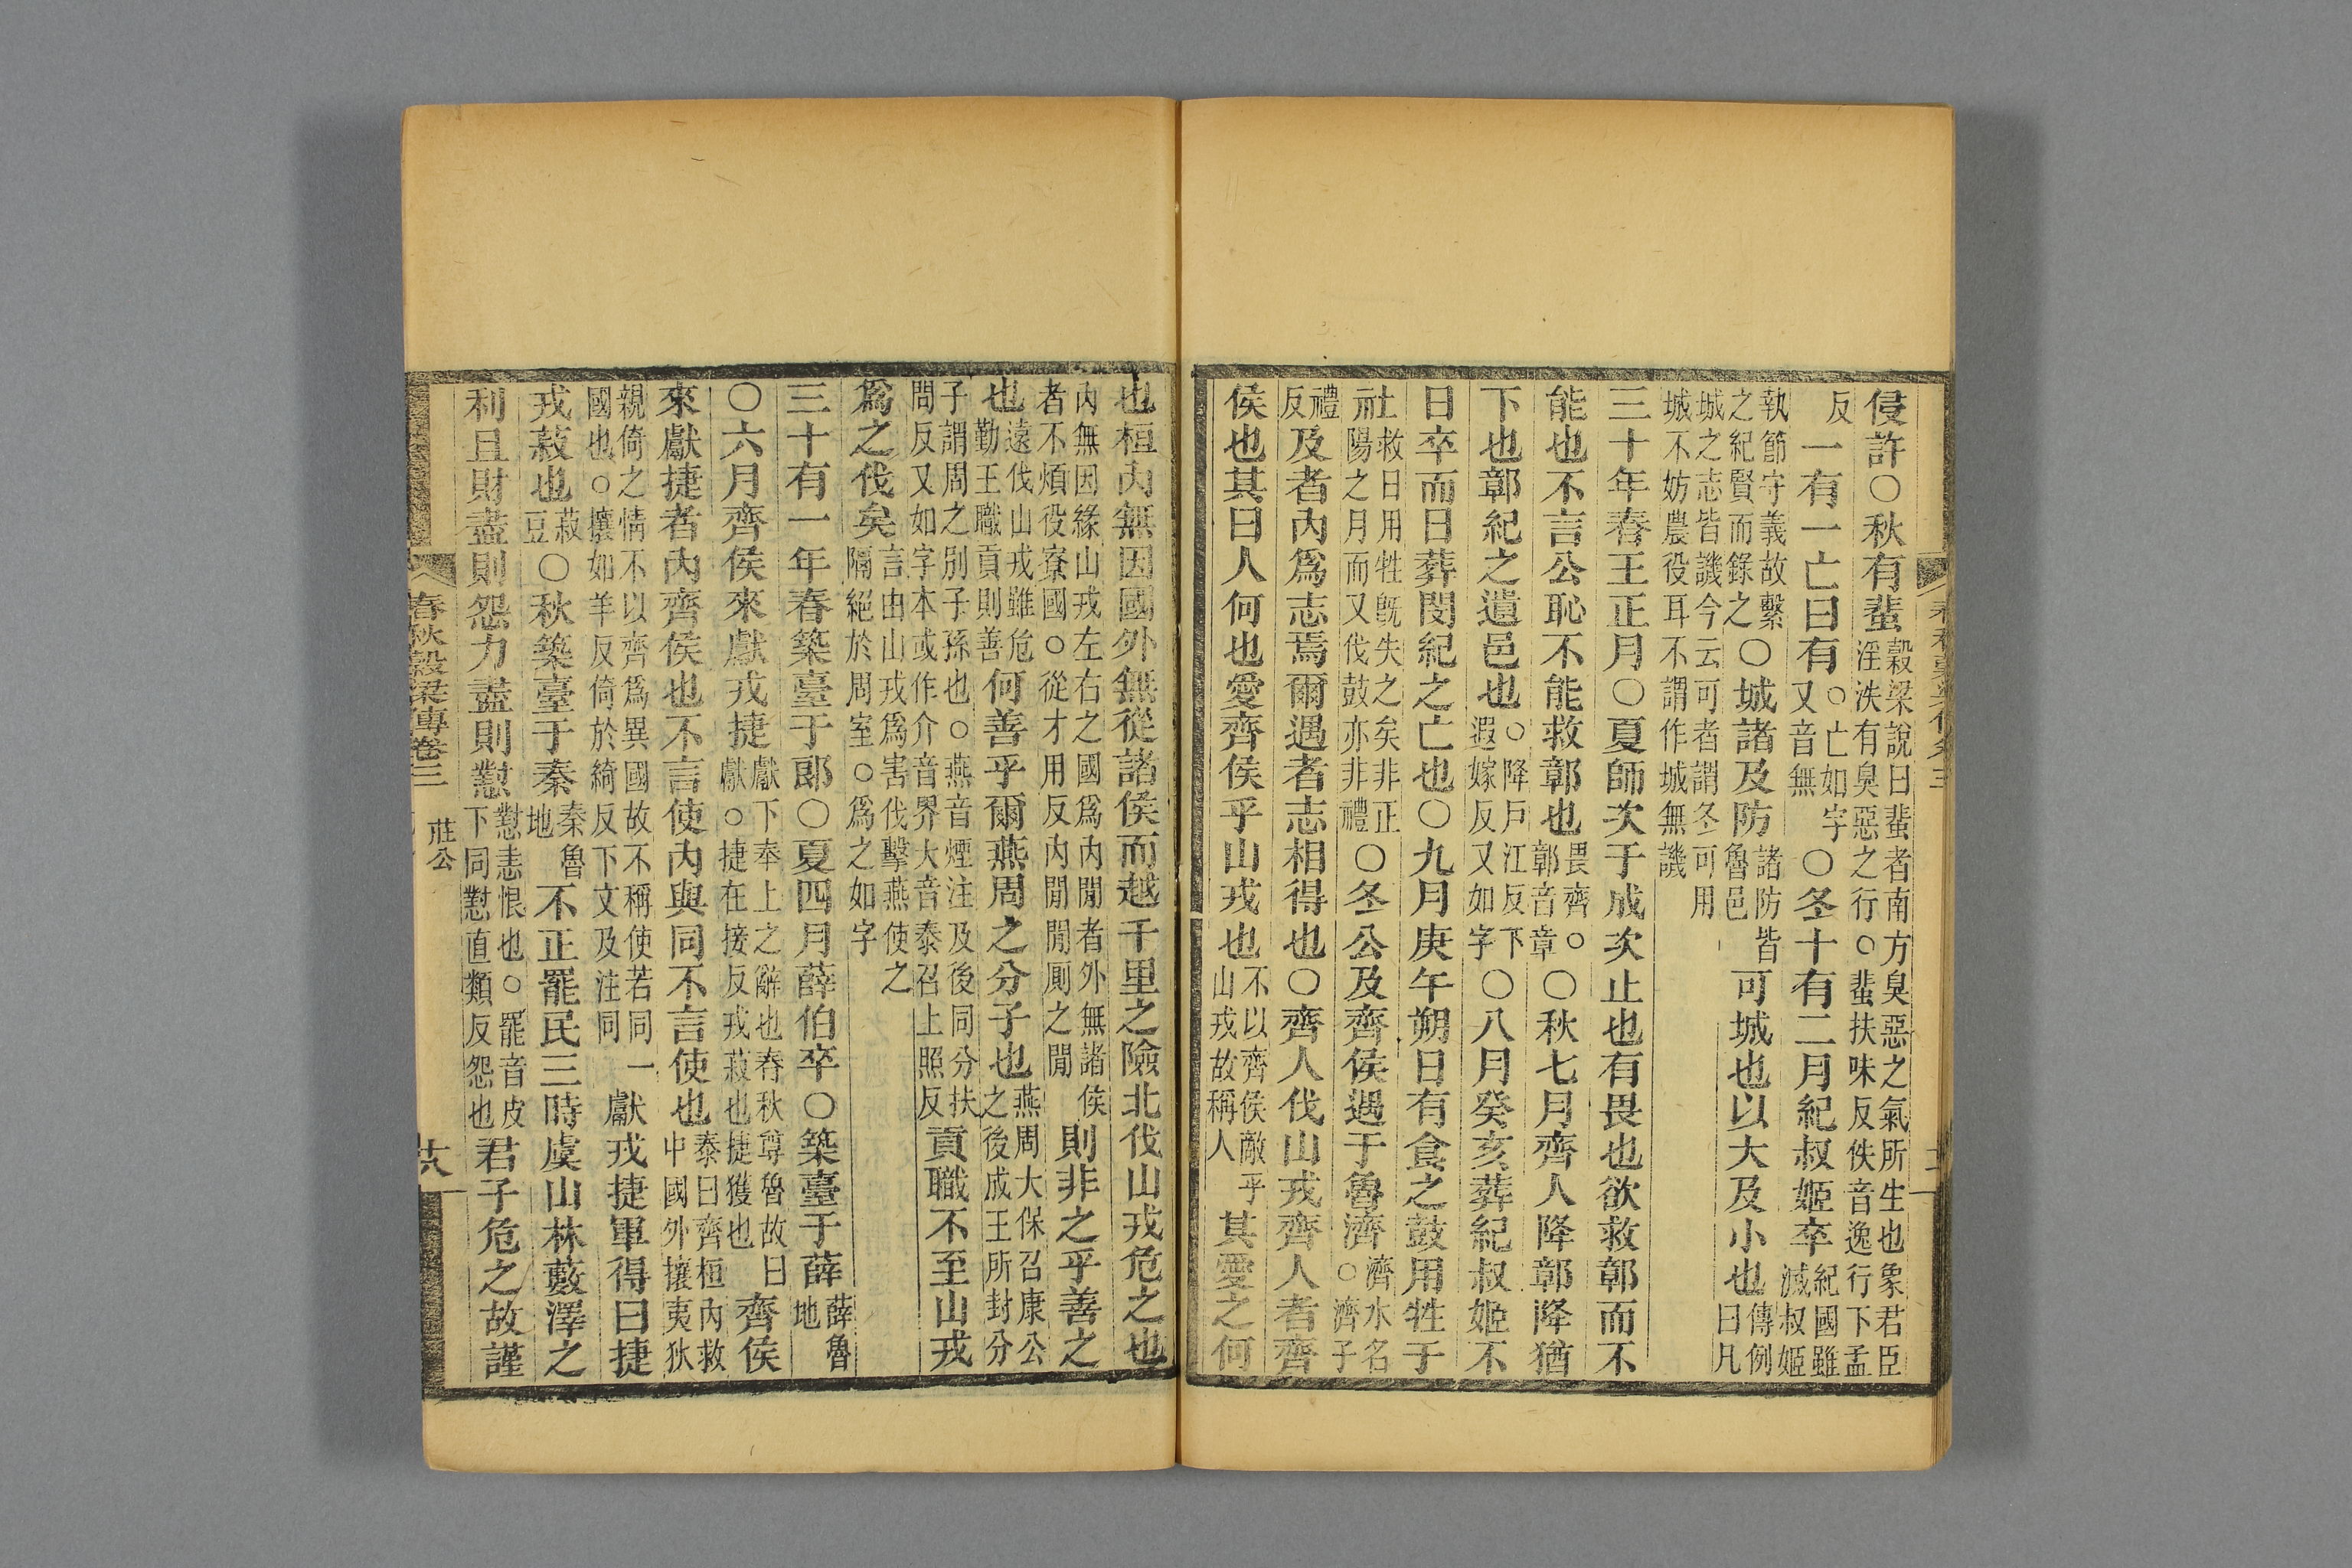 侵許〇秋有蜚穀梁說曰蜚者南方臭惡之氣所生也象君臣淫泆有臭惡之行〇蜚扶味反佚音逸行下孟
反一有一亡曰有〇亡如字又音無〇冬十有二月紀叔姬卒紀國雖滅叔姬
執節守義故繫之紀賢而錄之〇城諸及防諸防皆魯邑可城也以大及小也傳例曰凡
城之志皆譏今云可者謂冬可用城不妨農役耳不謂作城無譏
三十年春王正月〇夏師次于成次止也有畏也欲救鄣而不
能也不言公恥不能救鄣也畏齊〇鄣音章〇秋七月齊人降鄣降猶
下也鄣紀之遺邑也〇降戶江反下遐嫁反又如字〇八月癸亥葬紀叔姬不
日卒而日葬閔紀之亡也〇九月庚午朔日有食之鼓用牲于
社救日用牲旣失之矣非正陽之月而又伐鼓亦非禮〇冬公及齊侯遇于魯濟濟水名〇濟子
禮反及者內爲志焉爾遇者志相得也〇齊人伐山戎齊人者齊
侯也其曰人何也愛齊侯乎山戎也不以齊侯敵乎山戎故稱人其愛之何
也桓內無因國外無從諸侯而越千里之險北伐山戎危之也
內無因緣山戎左右之國爲內閒者外無諸侯者不煩役寮國〇從才用反內閒閒厠之閒則非之乎善之
也遠伐山戎雖危勤王職貢則善何善乎爾燕周之分子也燕周大保召康公之後成王所封分
子謂周之別子孫也〇燕音煙注及後同分扶問反又如字本或作介音界大音泰召上照反貢職不至山戎
爲之伐矣言由山戎爲害伐擊燕使之隔絕於周室〇爲之如字
三十有一年春築臺于郎〇夏四月薛伯卒〇築臺于薛薛魯地
〇六月齊侯來獻戎捷獻下奉上之辭也春秋尊魯故曰獻〇捷在接反戎菽也捷獲也齊侯
來獻捷者內齊侯也不言使內與同不言使也泰曰齊桓內救中國外攘夷狄
親倚之情不以齊爲異國故不稱使若同一國也〇攘如羊反倚於綺反下文及注同獻戎捷軍得曰捷
戎菽也菽豆〇秋築臺于秦秦魯地不正罷民三時虞山林藪澤之
利且財盡則怨力盡則懟懟恚恨也〇罷音皮下同懟直類反怨也君子危之故謹
春秋穀梁傳卷三 莊公